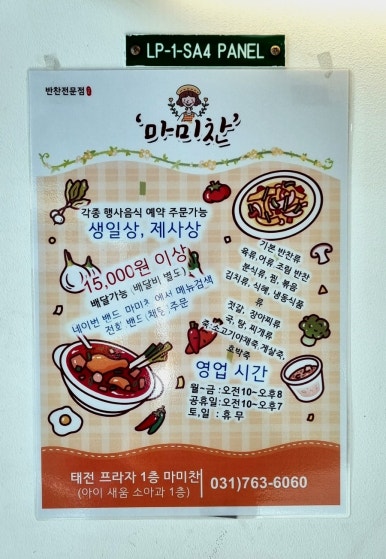 LP-1-SA4 PANEL
반찬전문점
'마미찬'
각종 행사음식 예약 주문가능
생일상, 제사상
15,000원 이상
배달가능 배달비 별도)
네이번 밴드 마미찬 에서 메뉴검색
전화 밴드(채팅) 주문
기본 반찬류
육류,어류 조림 반찬
분식류, 찜, 볶음
김치류, 식혜, 냉동식품
류
젓갈, 장아찌류
국, 탕, 찌개류
죽:소고기야채죽,게살죽,
호박죽
영업 시간
월~금 :오전10~오후8
공휴일:오전10~오후7
토,일 : 휴 무
태전 프라자 1층 마미찬
(아이 새움 소아과 1층)
031)763-6060